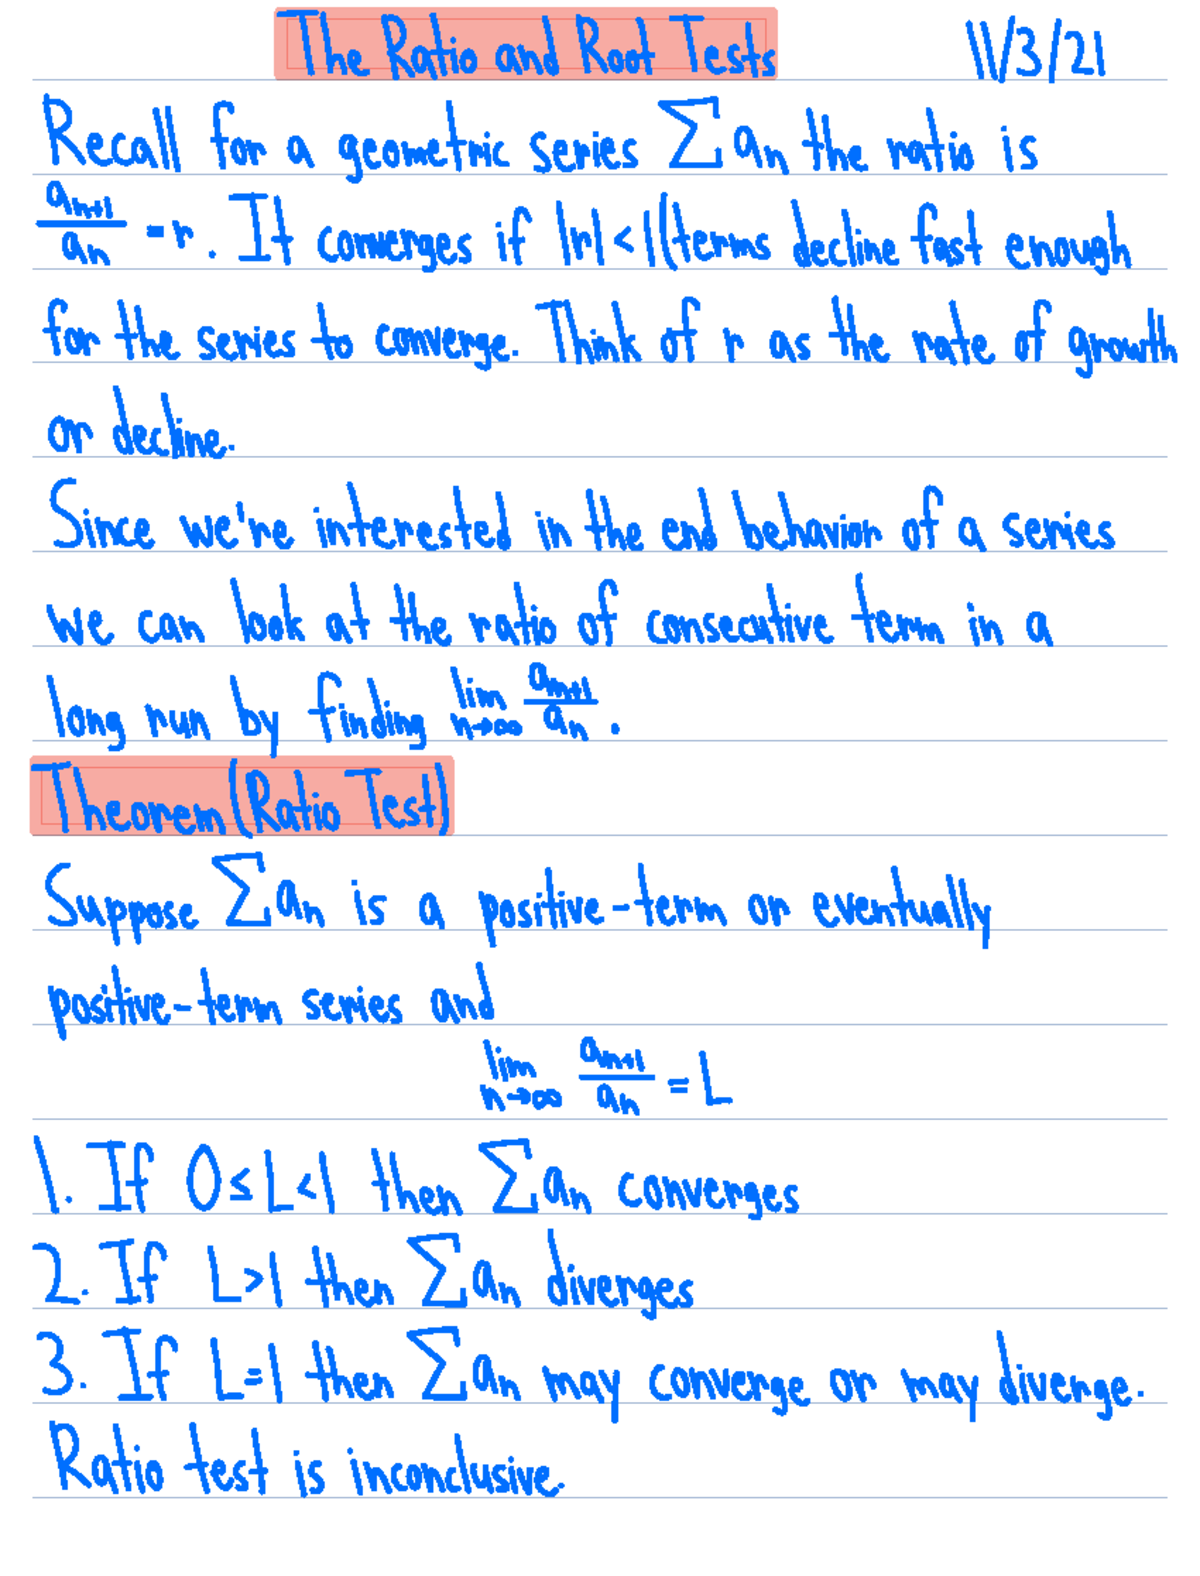 The Ratio and Root Tests 11/3/21
Recall for a geometric series ∑ aₙ the ratio is
aₙ₊₁/aₙ = r. It converges if |r| < 1 (terms decline fast enough
for the series to converge. Think of r as the rate of growth
or decline.
Since we're interested in the end behavior of a series
we can look at the ratio of consecutive term in a
long run by finding lim n→∞ aₙ₊₁/aₙ.
Theorem (Ratio Test)
Suppose ∑ aₙ is a positive-term or eventually
positive-term series and
lim n→∞ aₙ₊₁/aₙ = L
1. If 0 ≤ L < 1 then ∑ aₙ converges
2. If L > 1 then ∑ aₙ diverges
3. If L = 1 then ∑ aₙ may converge or may diverge.
Ratio test is inconclusive.